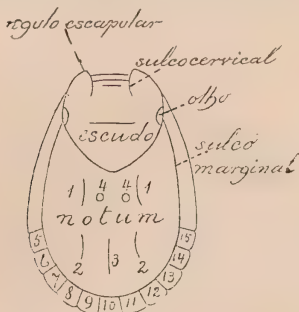 ngulo escapular
sulco cervical
olho
escudo
sulco
marginal
1 4 4 1
notum
2 3 2
5 6 7 8 9 10 11 12 13 14 15